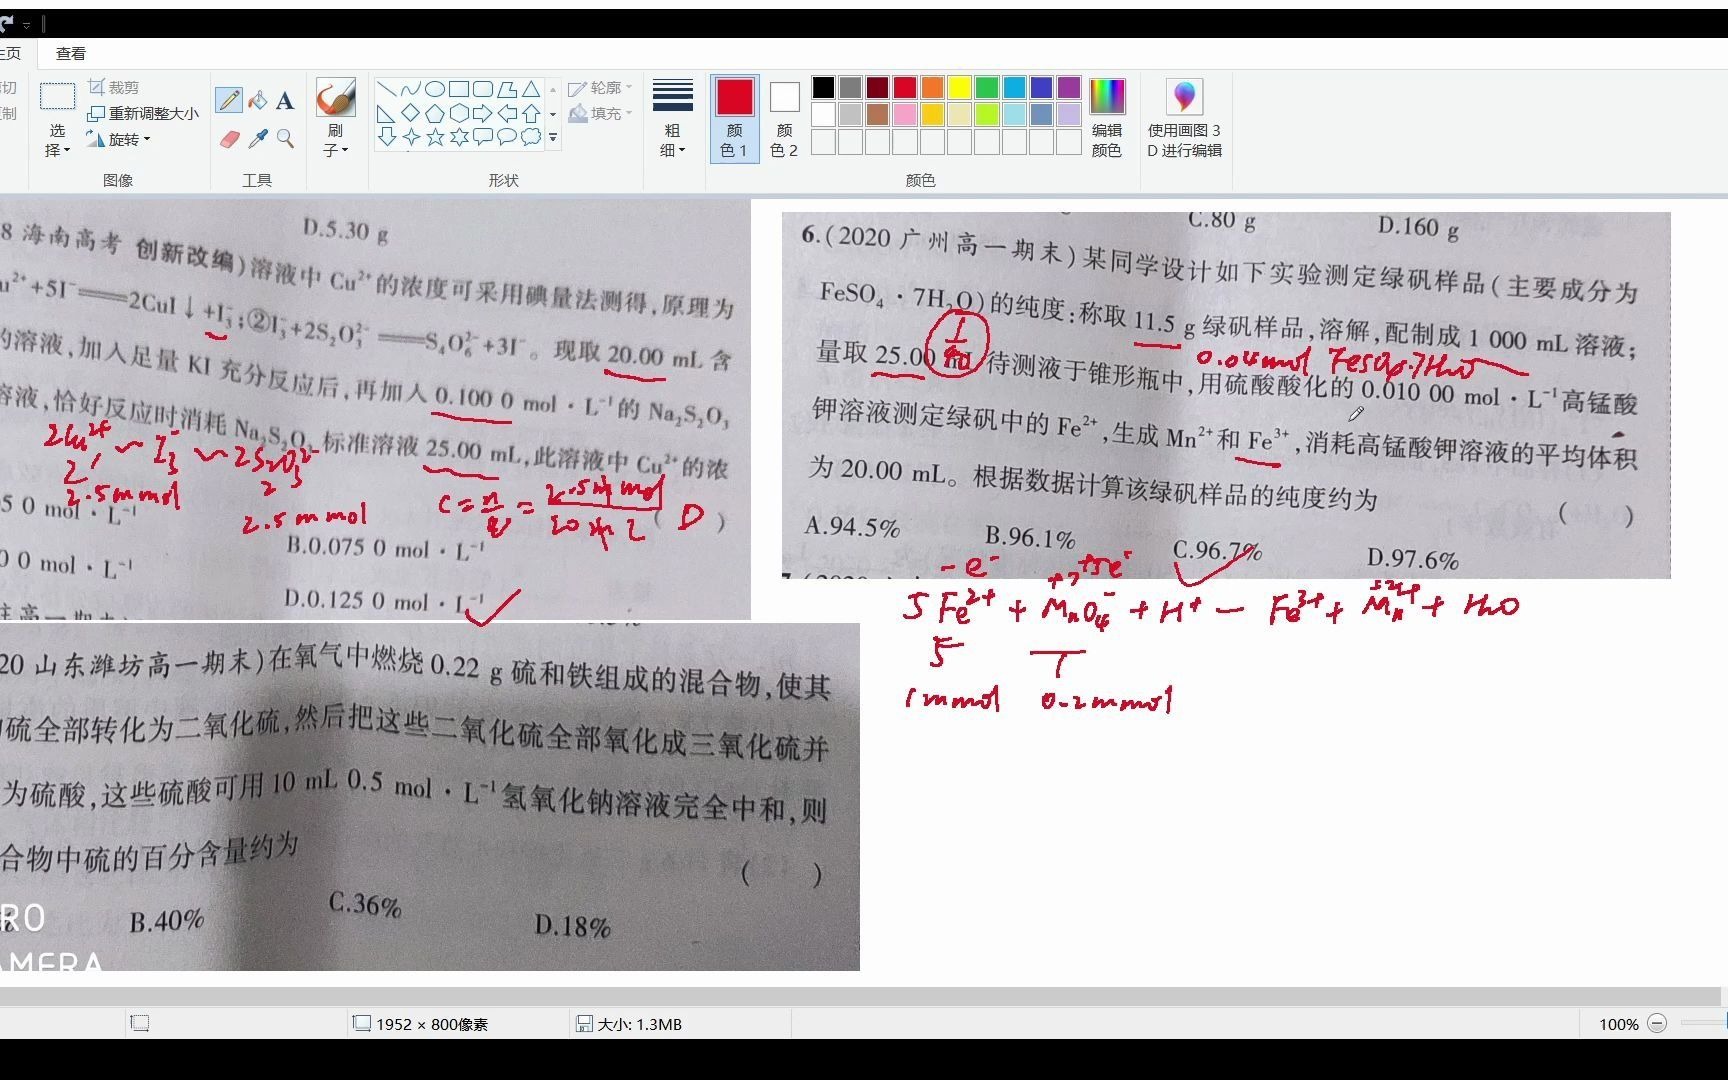 主页 查看
剪切
复制
选择
裁剪
重新调整大小
旋转
图像
A
工具
刷子
轮廓
填充
形状
粗细
颜色 1
颜色 2
颜色
编辑颜色
使用画图 3D 进行编辑
D.5.30 g
8 海南高考 创新改编)溶液中 Cu²⁺的浓度可采用碘量法测得,原理为
u²⁺+5I⁻═══2CuI↓+I₃⁻;②I₃⁻+2S₂O₃²⁻═══S₄O₆²⁻+3I⁻。现取 20.00 mL 含
的溶液,加入足量 KI 充分反应后,再加入 0.100 0 mol·L⁻¹的 Na₂S₂O₃
溶液,恰好反应时消耗 Na₂S₂O₃ 标准溶液 25.00 mL,此溶液中 Cu²⁺的浓
2Cu²⁺ ~ I₃⁻ ~ 2S₂O₃²⁻
2 2
2.5mmol
2.5mmol
( D )
5 0 mol·L⁻¹
B.0.075 0 mol·L⁻¹
0 0 mol·L⁻¹
D.0.125 0 mol·L⁻¹
20 山东潍坊高一期末)在氧气中燃烧 0.22 g 硫和铁组成的混合物,使其
硫全部转化为二氧化硫,然后把这些二氧化硫全部氧化成三氧化硫并
为硫酸,这些硫酸可用 10 mL 0.5 mol·L⁻¹氢氧化钠溶液完全中和,则
合物中硫的百分含量约为
( )
B.40% C.36% D.18%
RO
AMERA
C.80 g D.160 g
6.(2020 广州高一期末)某同学设计如下实验测定绿矾样品(主要成分为
FeSO₄·7H₂O)的纯度:称取 11.5 g 绿矾样品,溶解,配制成 1 000 mL 溶液;
1/40
0.04mol FeSO₄·7H₂O
量取 25.00 mL 待测液于锥形瓶中,用硫酸酸化的 0.010 00 mol·L⁻¹高锰酸
钾溶液测定绿矾中的 Fe²⁺,生成 Mn²⁺和 Fe³⁺,消耗高锰酸钾溶液的平均体积
为 20.00 mL。根据数据计算该绿矾样品的纯度约为 ( )
A.94.5% B.96.1% C.96.7% D.97.6%
-e⁻ +7 +5e⁻
5Fe²⁺ + MnO₄⁻ + H⁺ — Fe³⁺ + Mn²⁺ + H₂O
5 1
1mmol 0.2mmol
1952 × 800像素
大小: 1.3MB
100%